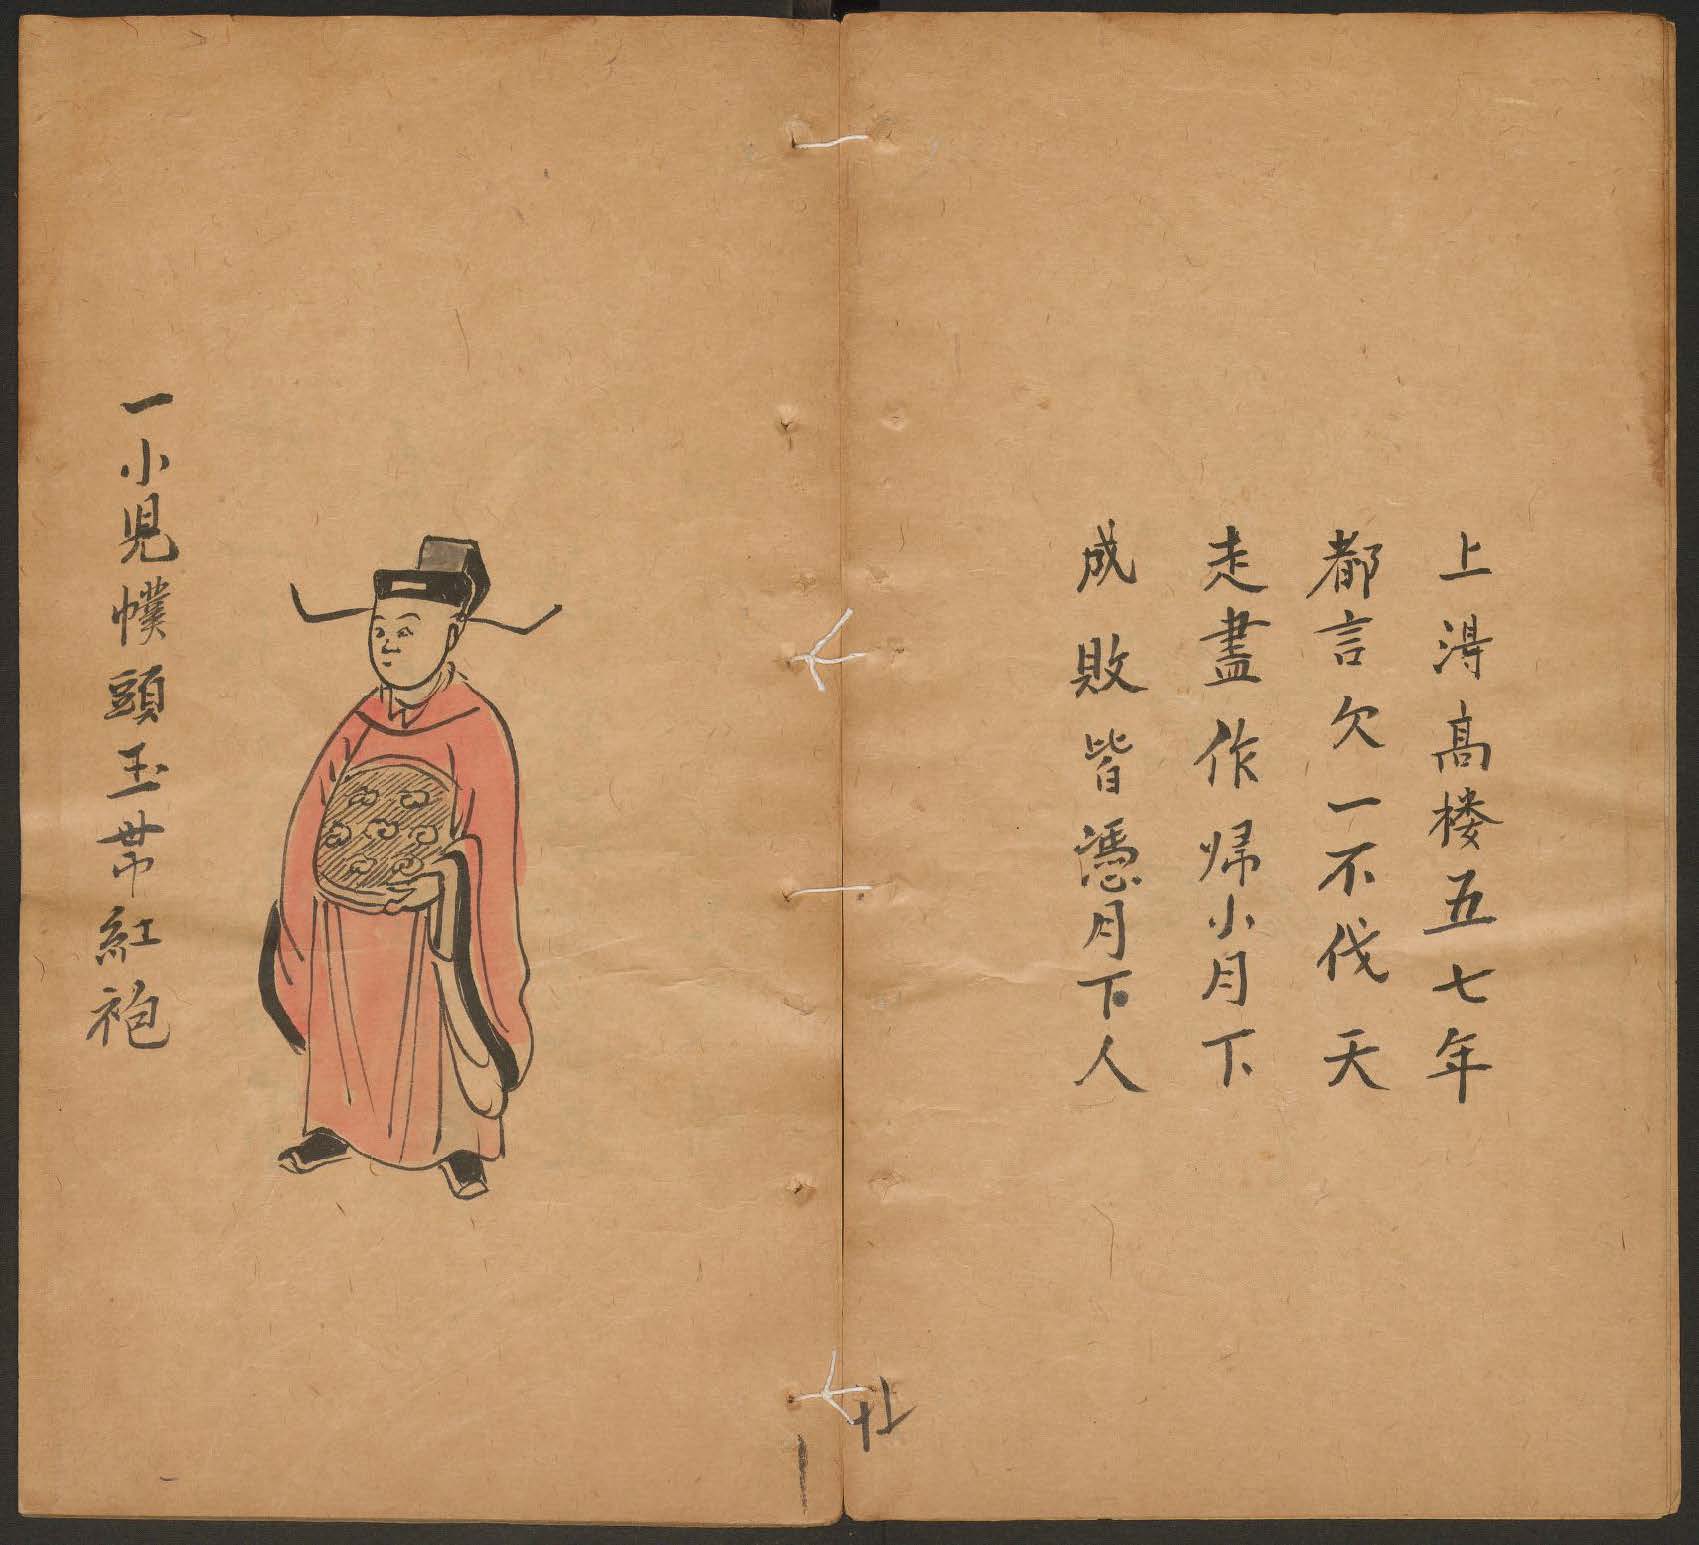 上淂髙楼五七年
都言欠一不伐天
走盡作帰小月下
成敗皆憑月下人
一小児幞頭玉帯紅袍